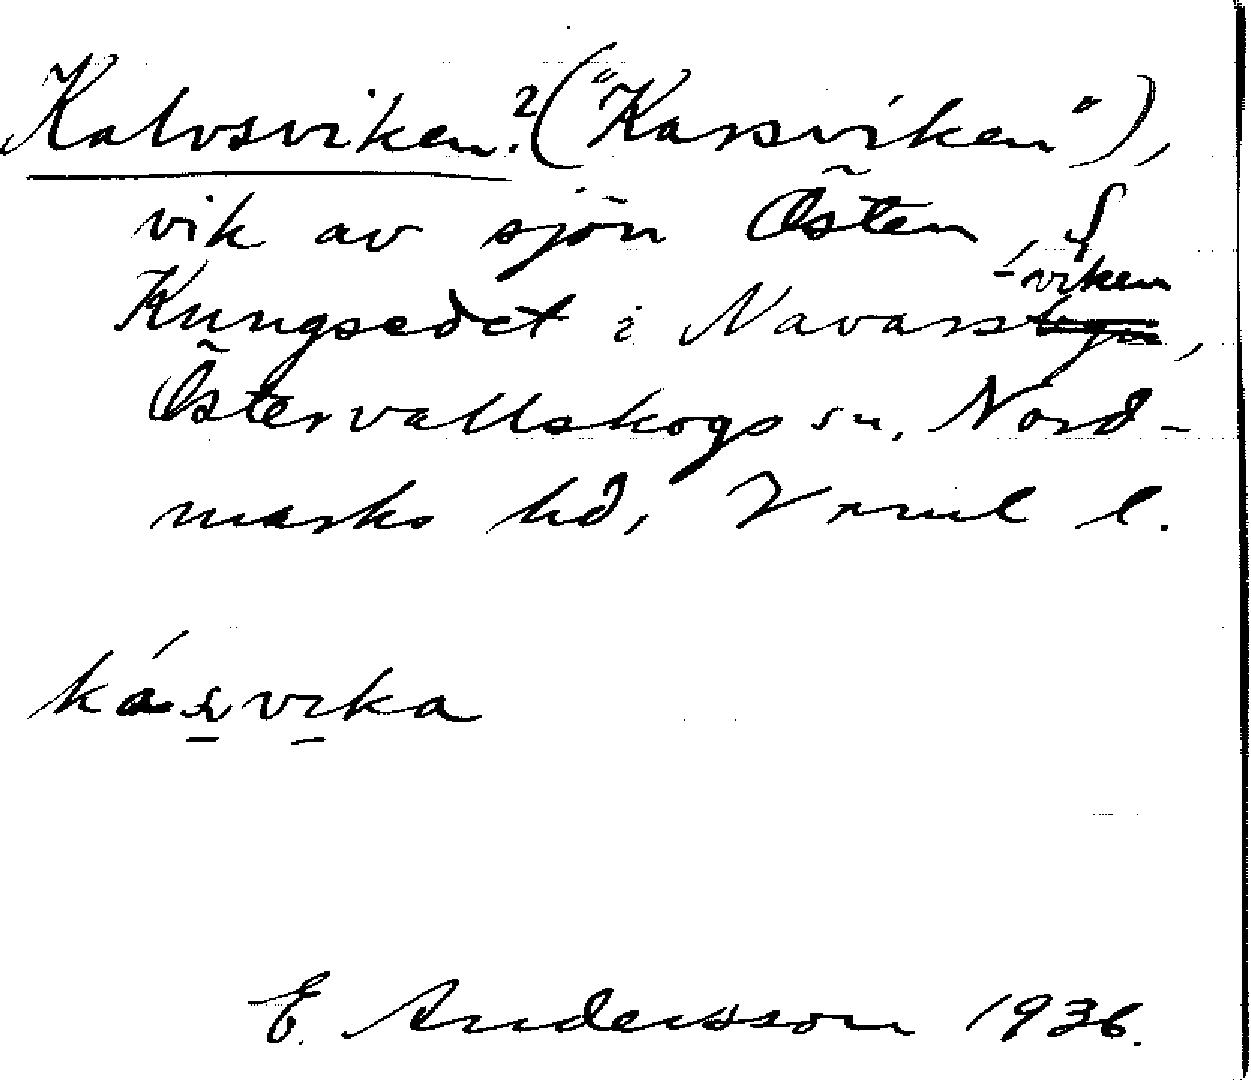 Kalvsviken? ("Karsviken"),
vik av sjön Östen,
Kungsedet i Navarsviken,
Östervallskogs sn, Nord-
marks hd, Vrml l.
kásvika
E. Andersson 1936.